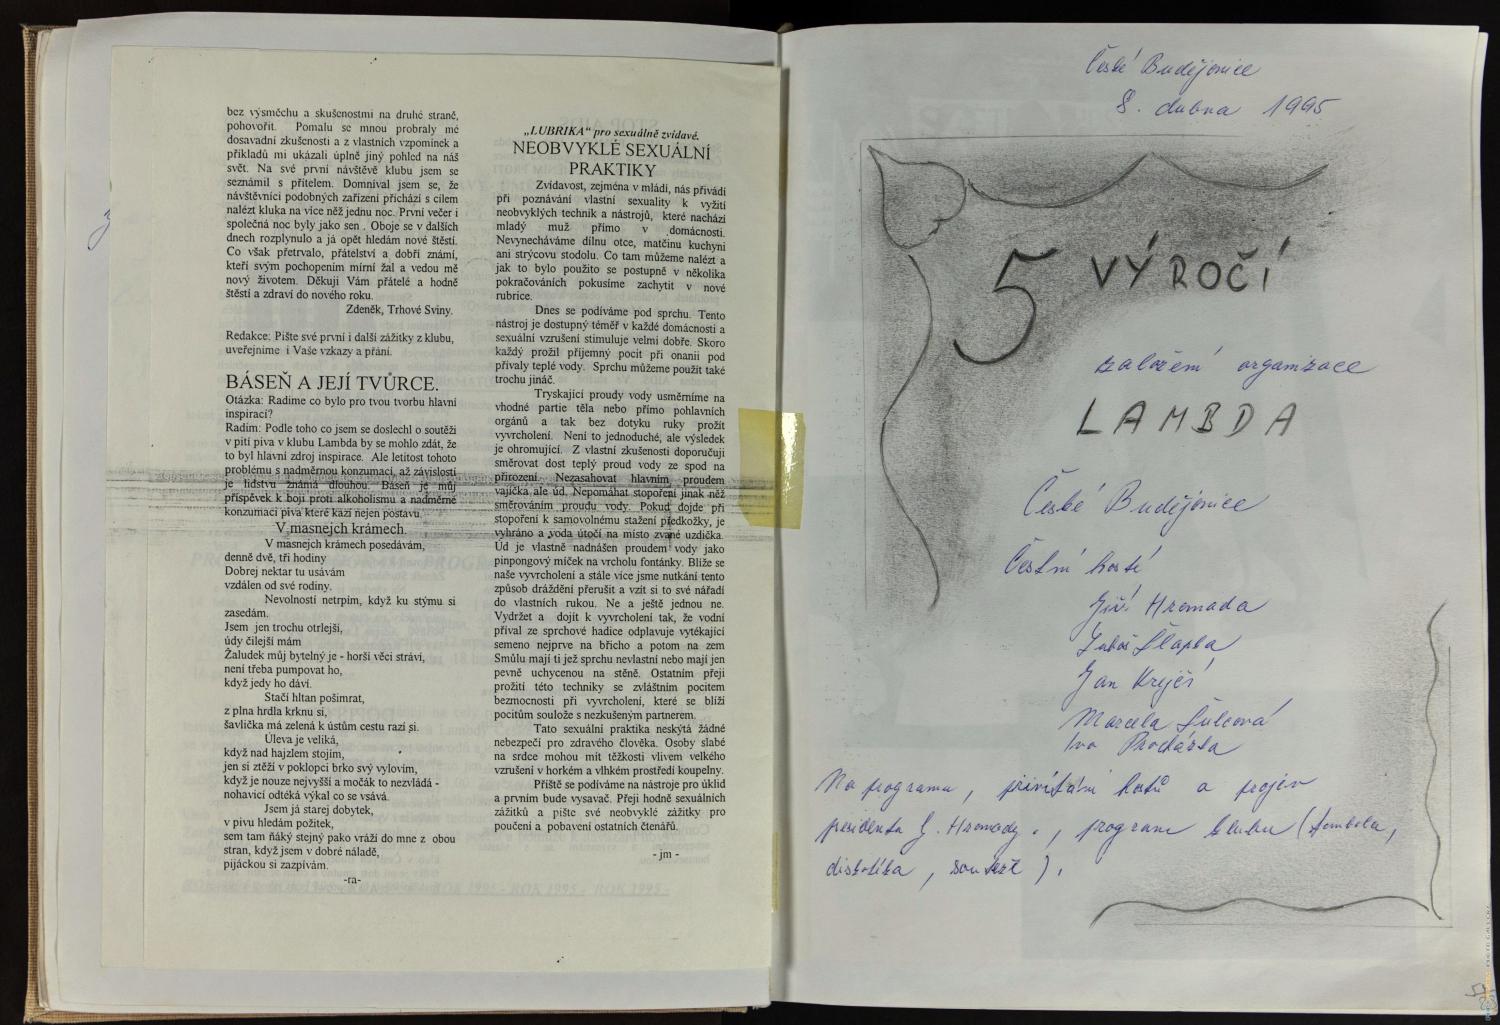 bez výsměchu a skušenostmi na druhé straně,
pohovořit. Pomalu se mnou probraly mé
dosavadní zkušenosti a z vlastních vzpomínek a
příkladů mi ukázali úplně jiný pohled na náš
svět. Na své první návštěvě klubu jsem se
seznámil s přítelem. Domníval jsem se, že
návštěvníci podobných zařízení přichází s cílem
nalézt kluka na více něž jednu noc. První večer i
společná noc byly jako sen . Oboje se v dalších
dnech rozplynulo a já opět hledám nové štěstí.
Co však přetrvalo, přátelství a dobří známí,
kteří svým pochopením mírní žal a vedou mě
nový životem. Děkuji Vám přátelé a hodně
štěstí a zdraví do nového roku.
Zdeněk, Trhové Sviny.
Redakce: Pište své první i další zážitky z klubu,
uveřejníme i Vaše vzkazy a přání.
BÁSEŇ A JEJÍ TVŮRCE.
Otázka: Radime co bylo pro tvou tvorbu hlavní
inspirací?
Radim: Podle toho co jsem se doslechl o soutěži
v pití piva v klubu Lambda by se mohlo zdát, že
to byl hlavní zdroj inspirace. Ale letitost tohoto
problému s nadměrnou konzumací, až závislostí
je lidstvu známá dlouhou. Báseň je můj
příspěvek k boji proti alkoholismu a nadměrné
konzumaci piva které kazí nejen postavu.
V masnejch krámech.
V masnejch krámech posedávám,
denně dvě, tři hodiny
Dobrej nektar tu usávám
vzdálen od své rodiny.
Nevolností netrpím, když ku stýmu si
zasedám.
Jsem jen trochu otrlejší,
údy čilejší mám
Žaludek můj bytelný je - horší věci stráví,
není třeba pumpovat ho,
když jedy ho dáví.
Stačí hltan pošimrat,
z plna hrdla krknu si,
šavlička má zelená k ústům cestu razí si.
Úleva je veliká,
když nad hajzlem stojím,
jen si ztěží v poklopci brko svý vylovím,
když je nouze nejvyšší a močák to nezvládá -
nohavicí odtéká výkal co se vsává.
Jsem já starej dobytek,
v pivu hledám požitek,
sem tam ňáký stejný pako vráží do mne z obou
stran, když jsem v dobré náladě,
pijáckou si zazpívám.
-ra-
„LUBRIKA“ pro sexuálně zvídavé.
NEOBVYKLÉ SEXUÁLNÍ
PRAKTIKY
Zvídavost, zejména v mládí, nás přivádí
při poznávání vlastní sexuality k využití
neobvyklých technik a nástrojů, které nachází
mladý muž přímo v domácnosti.
Nevynecháváme dílnu otce, matčinu kuchyni
ani strýcovu stodolu. Co tam můžeme nalézt a
jak to bylo použito se postupně v několika
pokračováních pokusíme zachytit v nové
rubrice.
Dnes se podíváme pod sprchu. Tento
nástroj je dostupný téměř v každé domácnosti a
sexuální vzrušení stimuluje velmi dobře. Skoro
každý prožil příjemný pocit při onanii pod
přívaly teplé vody. Sprchu můžeme použít také
trochu jináč.
Tryskající proudy vody usměrníme na
vhodné partie těla nebo přímo pohlavních
orgánů a tak bez dotyku ruky prožít
vyvrcholení. Není to jednoduché, ale výsledek
je ohromující. Z vlastní zkušenosti doporučuji
směrovat dost teplý proud vody ze spod na
přirození. Nezasahovat hlavním proudem
vajíčka ale úd. Nepomáhat stopoření jinak než
směrováním proudu vody. Pokud dojde při
stopoření k samovolnému stažení předkožky, je
vyhráno a voda útočí na místo zvané uzdička.
Úd je vlastně nadnášen proudem vody jako
pinpongový míček na vrcholu fontánky. Blíže se
naše vyvrcholení a stále více jsme nutkání tento
způsob dráždění přerušit a vzít si to své nářadí
do vlastních rukou. Ne a ještě jednou ne.
Vydržet a dojít k vyvrcholení tak, že vodní
příval ze sprchové hadice odplavuje vytékající
semeno nejprve na břicho a potom na zem
Smůlu mají ti jež sprchu nevlastní nebo mají jen
pevně uchycenou na stěně. Ostatním přeji
prožití této techniky se zvláštním pocitem
bezmocnosti při vyvrcholení, které se blíží
pocitům soulože s nezkušeným partnerem.
Tato sexuální praktika neskýtá žádné
nebezpečí pro zdravého člověka. Osoby slabé
na srdce mohou mít těžkosti vlivem velkého
vzrušení v horkém a vlhkém prostředí koupelny.
Příště se podíváme na nástroje pro úklid
a prvním bude vysavač. Přeji hodně sexuálních
zážitků a pište své neobvyklé zážitky pro
poučení a pobavení ostatních čtenářů.
- jm -
České Budějovice
8. dubna 1995
5 VÝROČÍ
založení organizace
LAMBDA
České Budějovice
Čestní hosté
Jiří Hromada
Luboš Šlapka
Jan Krejčí
Marcela Šulcová
Ivo Procházka
Na programu, přivítání hostů a projev
presidenta J. Hromady., program klubu (tombola,
diskotéka, soutěž).